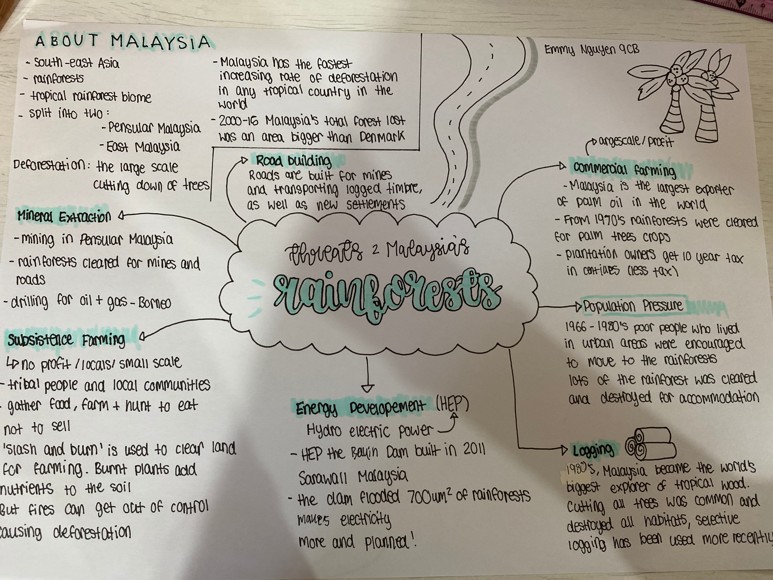 ABOUT MALAYSIA
- South-east Asia
- rainforests
- tropical rainforest biome
- split into two:
- Pensular Malaysia
- East Malaysia
Deforestation: the large scale
cutting down of trees
- Malaysia has the fastest
increasing rate of deforestation
in any tropical country in the
world
- 2000-16 Malaysia's total forest lost
was an area bigger than Denmark
Emmy Nguyen 9CB
Road building
Roads are built for mines
and transporting logged timbre,
as well as new settlements
Mineral Extraction
- mining in Pensular Malaysia
- rainforests cleared for mines and
roads
- drilling for oil + gas - Borneo
Subsistence Farming
↳ no profit/locals/small scale
- tribal people and local communities
- gather food, farm + hunt to eat
not to sell
'slash and burn' is used to clear land
for farming. Burnt plants add
nutrients to the soil
But fires can get out of control
causing deforestation
threats 2 Malaysia's
rainforests
Energy Developement (HEP)
Hydro electric power
- HEP the Bakin Dam built in 2011
Sarawall Malaysia
- the dam flooded 700um² of rainforests
makes electricity
More and planned!
largescale/profit
commercial farming
- Malaysia is the largest exporter
of palm oil in the world
- From 1970's rainforests were cleared
for palm trees crops
- plantation owners get 10 year tax
in (less tax)
Population Pressure
1966 - 1980's poor people who lived
in urban areas were encouraged
to move to the rainforests
lots of the rainforest was cleared
and destroyed for accommodation
Logging
1980's, Malaysia became the world's
biggest explorer of tropical wood.
Cutting all trees was common and
destroyed all habitats, selective
logging has been used more recently